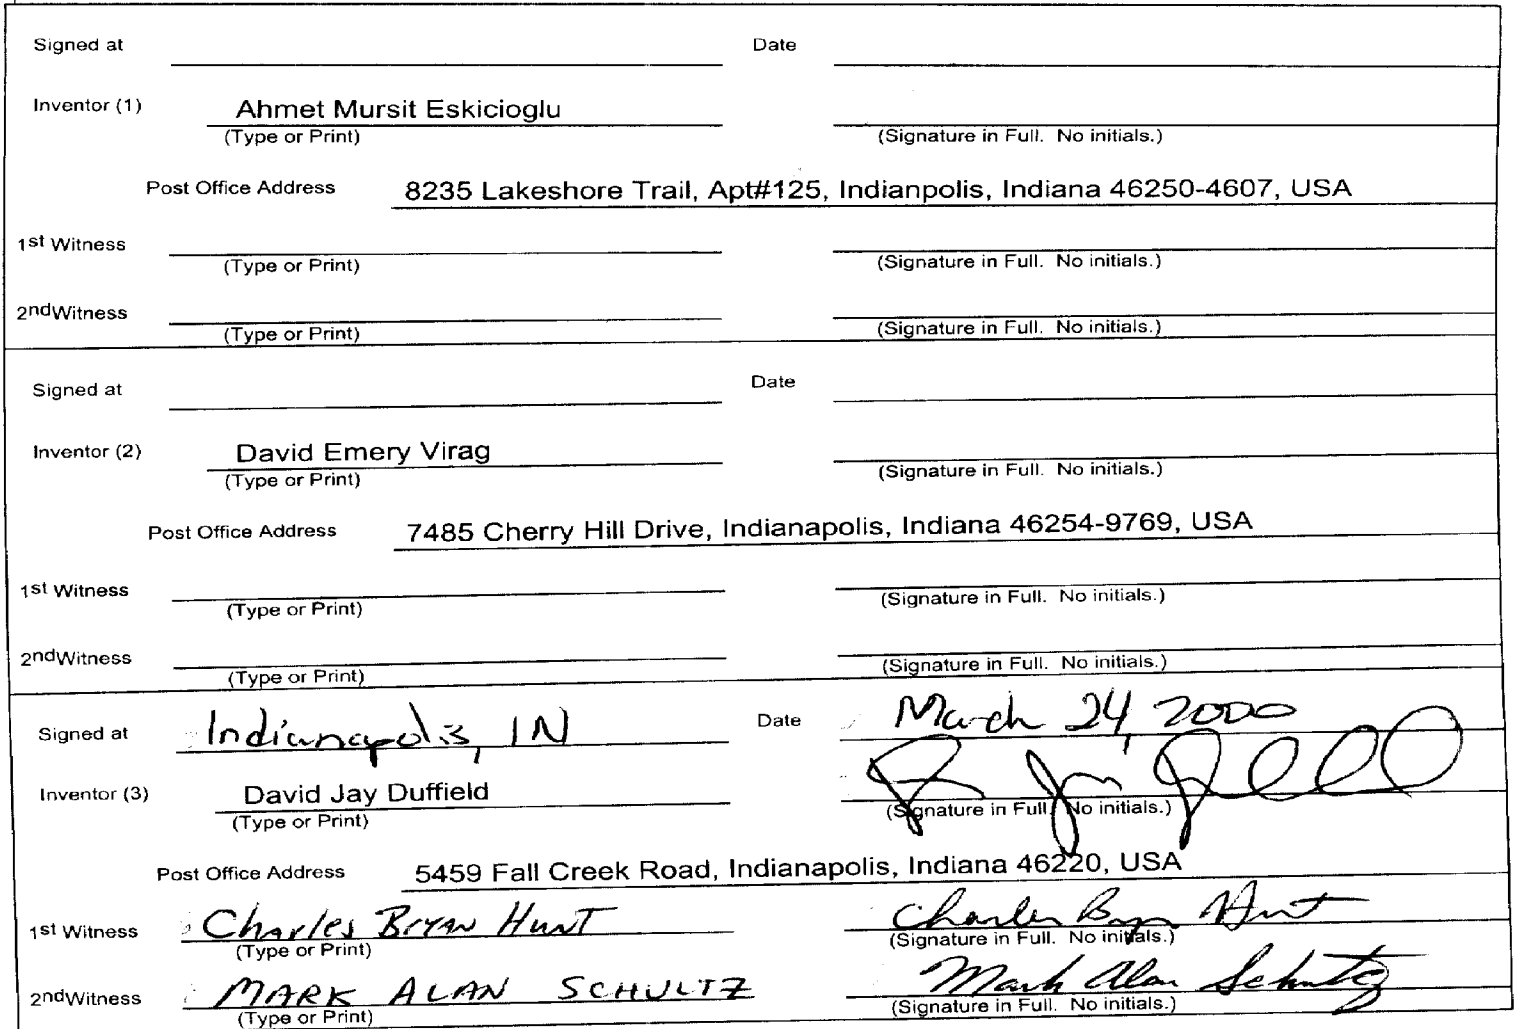 Signed at Date
Inventor (1) Ahmet Mursit Eskicioglu
(Type or Print) (Signature in Full. No initials.)
Post Office Address 8235 Lakeshore Trail, Apt#125, Indianpolis, Indiana 46250-4607, USA
1st Witness
(Type or Print) (Signature in Full. No initials.)
2ndWitness
(Type or Print) (Signature in Full. No initials.)
Signed at Date
Inventor (2) David Emery Virag
(Type or Print) (Signature in Full. No initials.)
Post Office Address 7485 Cherry Hill Drive, Indianapolis, Indiana 46254-9769, USA
1st Witness
(Type or Print) (Signature in Full. No initials.)
2ndWitness
(Type or Print) (Signature in Full. No initials.)
Signed at Indianapolis, IN Date March 24, 2000
Inventor (3) David Jay Duffield
(Type or Print) (Signature in Full. No initials.)
Post Office Address 5459 Fall Creek Road, Indianapolis, Indiana 46220, USA
1st Witness Charles Bryan Hunt Charles Bryan Hunt
(Type or Print) (Signature in Full. No initials.)
2ndWitness MARK ALAN SCHULTZ Mark Alan Schultz
(Type or Print) (Signature in Full. No initials.)